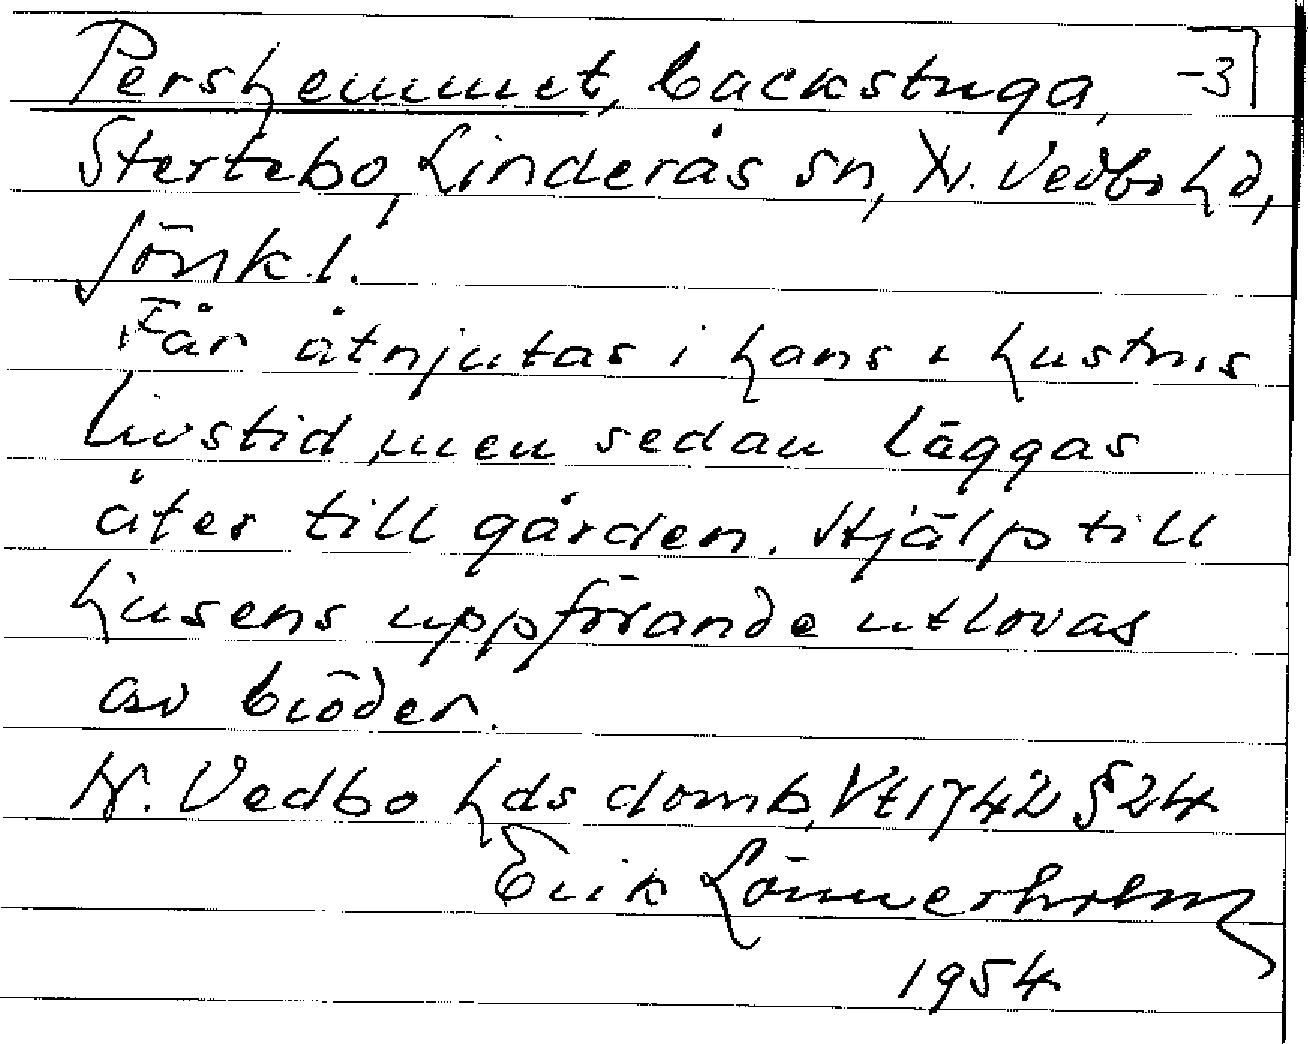 Pershemmet, backstuga, -3
Stertebo, Linderås sn, N. Vedbo hd,
Jönk. l.
Får åtnjutas i hans & hustrus
livstid, men sedan läggas
åter till gården. Hjälp till
husens uppförande utlovas
av bröder.
N. Vedbo hds domb, Vt 1742 § 24
Erik Lönnerholm
1954